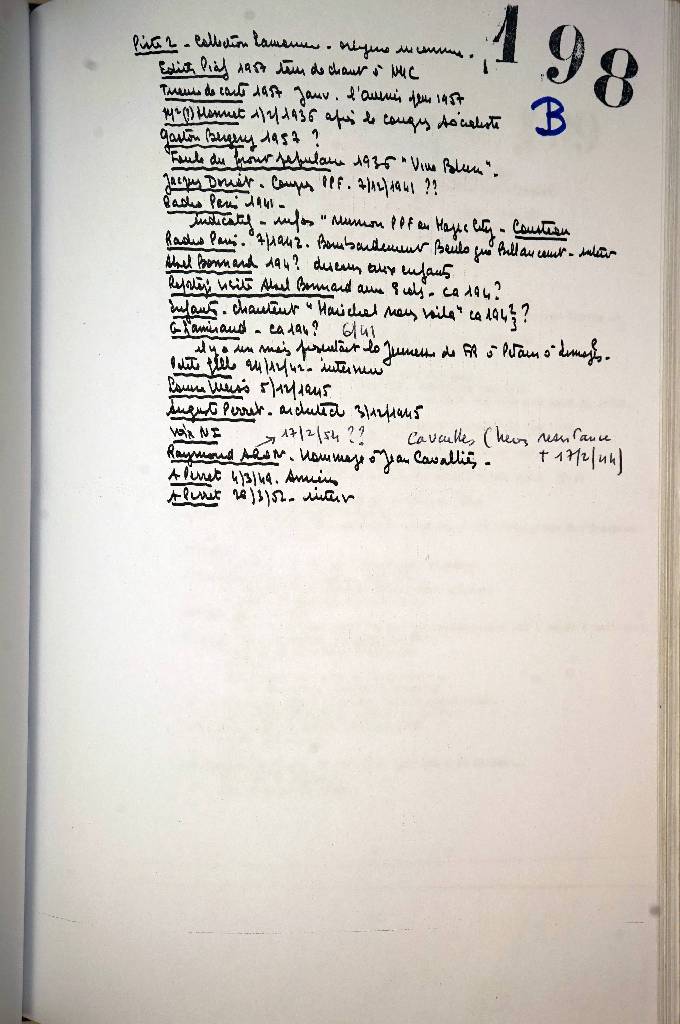 198
B
Piste 2 - Collection - origine inconnue.
Edith Piaf 1957 tour de chant à
Tireuse de carte 1957 Janv. l'avenir pour 1957
Monnet 1/2/1936 après le congrès socialiste
Gaston Bergery 1957 ?
Foule du front populaire 1936 "Vive Blum".
Jacques Doriot - Congrès PPF. 7/12/1941 ??
Radio Paris 1941 -
indicatif - infos "réunion PPF au Magic City -
Radio Paris. 7/1942. Bombardement Boulogne Billancourt -
Abel Bonnard 194? discours aux enfants
visite Abel Bonnard - ca 194?
Enfants - chantent "Maréchal nous voilà" ca 194 2/3 ?
G Lamirand - ca 194? 6/41
il y a un mois présentait la Jeunesse de à Pétain à Limoges -
Petite fille 24/12/42 -
Louise Weiss 5/12/1945
Auguste Perret - architecte 3/12/1945
Voix NI
→ 17/2/54 ?? Cavaillès (héros résistance
Raymond ARON. Hommage à Jean Cavaillès - + 17/2/44)
A Perret 4/3/49. Amiens
A Perret 28/3/52 - interv